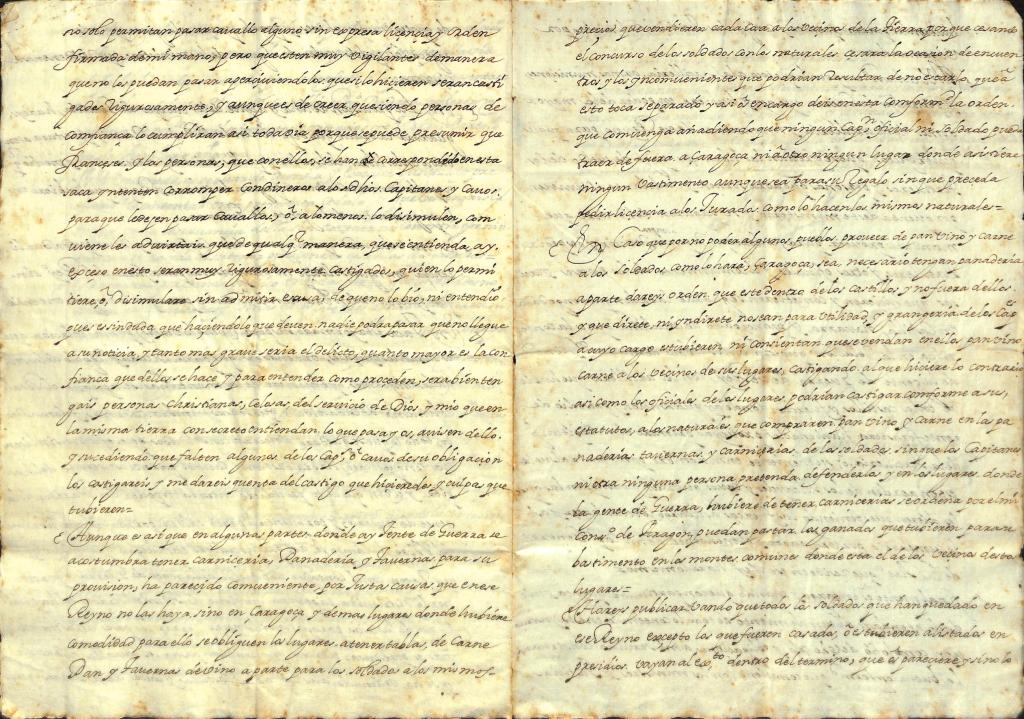 no solo permitan pasar cavallo alguno sin expresa licencia y orden
firmada de mi mano, pero que esten muy vigilantes de manera
que no los puedan pasar aperciviendolos, que si lo hicieren seran casti
gados rigurosamente, y aunque es de creer, que siendo personas de
confiança lo cumpliran asi, todavia porque se puede presumir que
franceses y las personas, que con ellos, se han de correspondido en esta
saca yntenten corromper con dineros a los dhos Capitanes y Cavos
para que les dejen pasar cavallos, ô, a lo menos, lo disimulen, com
viene les advirtais que de qualqr manera, que se entienda, ay
exceso en esto seran muy rigurosamente castigados, quien lo permi
tiere, ô, disimulare sin admitir escusa, de que no lo bio, ni entendio
pues es sin duda que haçiendo lo que deven, nadie podra pasar que no llegue
a su noticia, y tanto mas grave seria el delicto, quanto mayor es la con
fiança que dellos se hace, y para entender como proceden, sera bien ten
gais personas Christianas, celosas del servicio de Dios y mio que en
la misma tierra con secreto entiendan lo que pasa y os avisen dello
y sucediendo que falten algunos de los Capes ô cavos de su obligacion
les castigareis y me dareis quenta del castigo que hicieredes, y culpas que
tubieren=
Aunque es asi que en algunas partes donde ay Jente de Guerra se
acostumbra tener carniceria, Panaderia, y Tavernas para su
provision, ha parecido comveniente, por Justas causas, que en ese
Reyno no las haya, sino en Caragoça y demas lugares donde hubiere
comodidad para ello se obliguen los lugares a tener tablas, de Carne
Pan y Tavernas de vino a parte para los soldados a los mismos
precios, que vendieren cada cosa a los vecinos de la tierra, porque cesando
el concurso de los soldados con los naturales cesara la ocasion de encuen
tros y los ynconvenientes que podrian resultar de no estarlo,
esto toca separado y asi os encargo deis en esta conformd la orden
que comvenga añadiendo que ningun Capn oficial ni soldado pueda
traer de fuera a Caragoça ni a otro ningun lugar donde asistiere
ningun bastimento aunque sea para su regalo sin que preceda
pedir licencia a los Jurados como lo hacen los mismos naturales=
En Caso que por no poder algunos pueblos proveer de pan vino y carne
a los soldados como lo hara Caragoça, sea necesario tengan panaderia
aparte dareis orden que este dentro de los castillos y no fuera dellos
y que direte, ni yndirete no sean para utilidad, y grangeria de los Caps
a cuyo cargo estubieren ni consientan que se vendan en ellos pan vino
carne a los vecinos de sus lugares, castigando al que hiciere lo contrario
asi como los oficiales de los lugares podrian castigar conforme a sus
estatutos, a los naturales que compraren pan vino y carne en las pa
naderias tavernas y carnicerias de los soldados, sin que los Capitanes
ni otra ninguna persona pretenda defenderlos y en los lugares donde
la gente de Guerra, hubiere de tener carnicerias se ordena por el mi
Consº de Aragon, puedan pastar los ganados que tubieren para su
bastimento en los montes comunes donde esta el de los vecinos destos
lugares=
Hareis publicar vando que todos los soldados que han quedado en
ese Reyno excepto los que fueren casados, ô estubieren alistados en
presidios vayan al exto dentro del termino, que os pareciere y sino lo